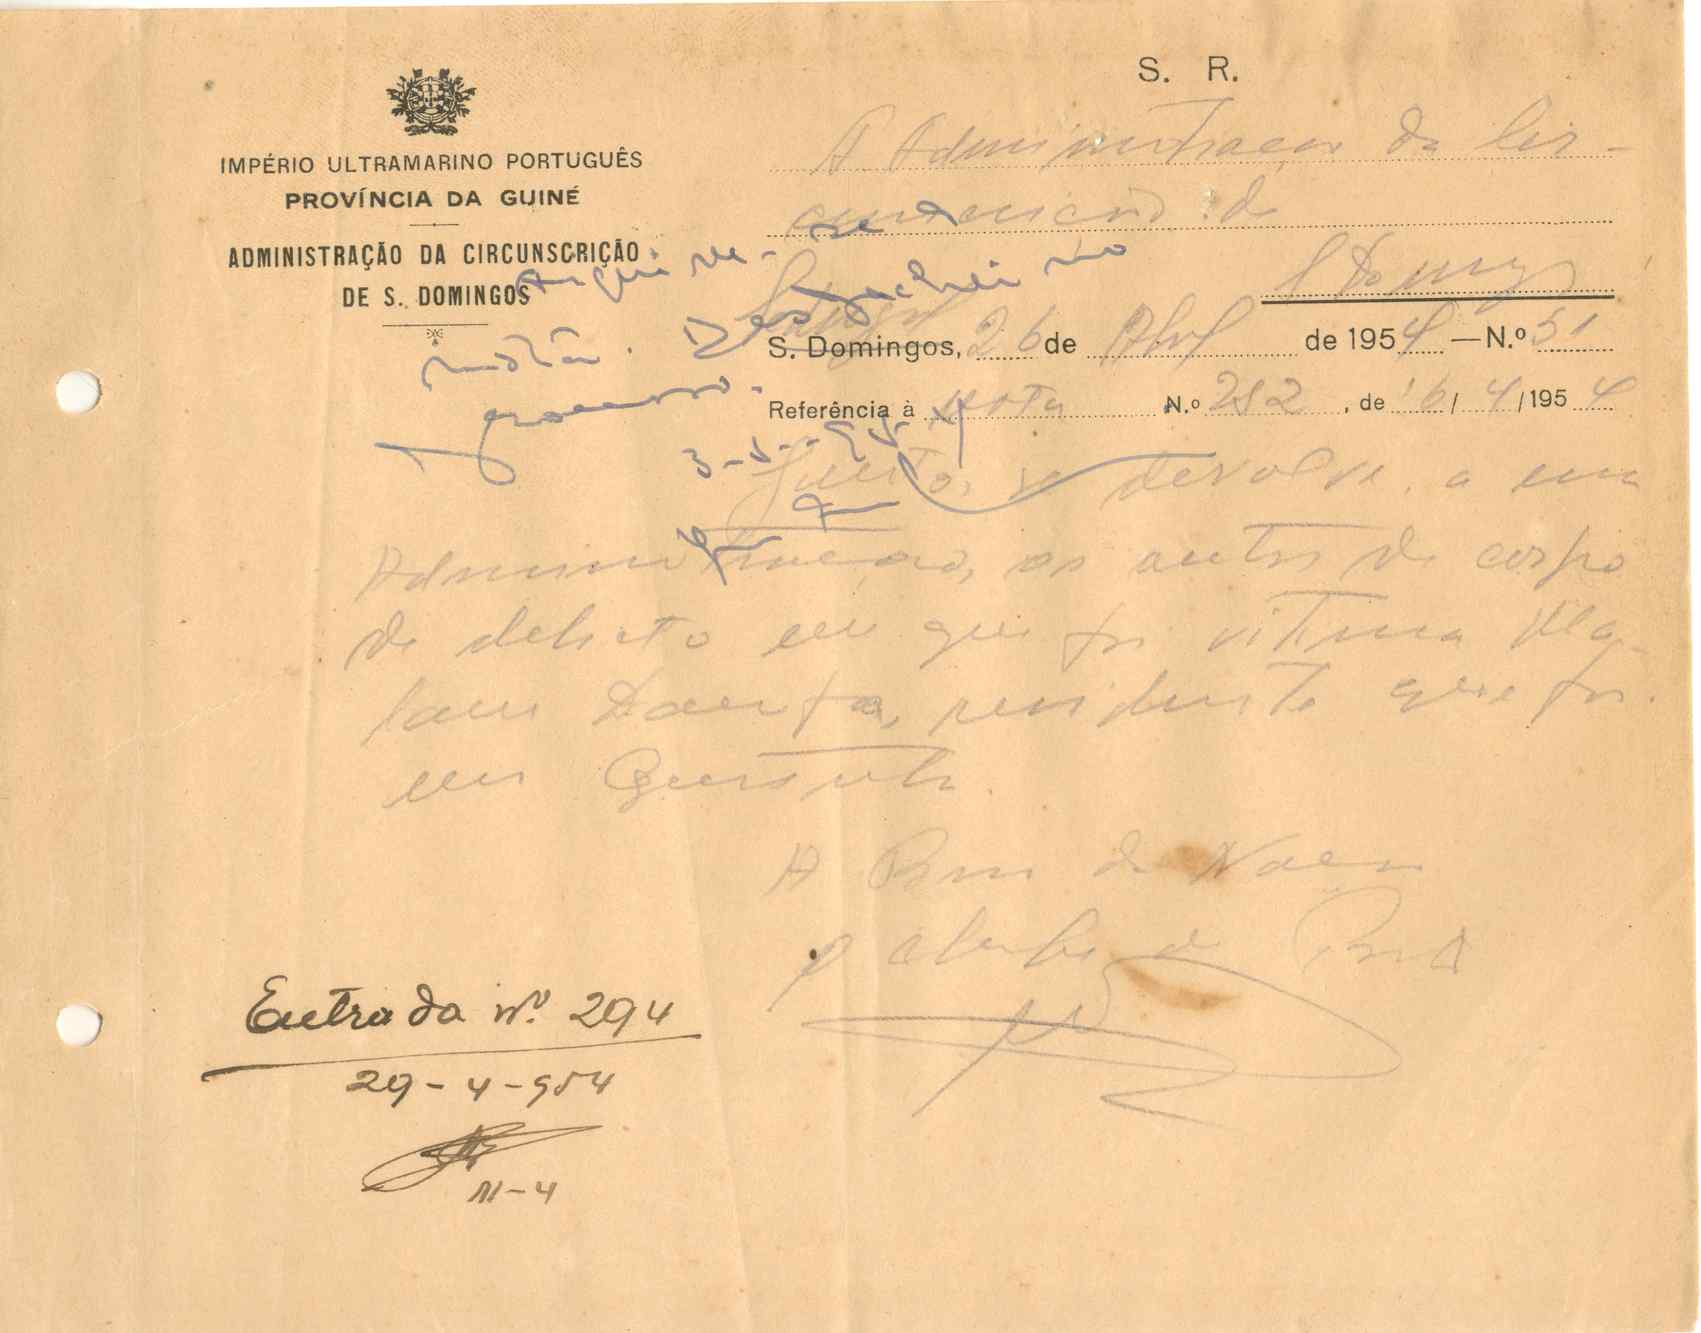 S. R.
IMPÉRIO ULTRAMARINO PORTUGUÊS
PROVÍNCIA DA GUINÉ
ADMINISTRAÇÃO DA CIRCUNSCRIÇÃO
DE S. DOMINGOS
A Administração da Cir-
cunscrição de
S Domingos
Arquive-se
Despachei no
processo.
S. Domingos, 26 de Abril de 1954 — N.º 51
Referência à nota N.º 252, de 16/4/1954
3-5-954
Junto se devolve, a essa
Administração, os autos de corpo
de delicto em que foi vitima Ma-
lam Damfa, residente que foi
em
A Bem da Nação
O Chefe de Posto
Entrada nº. 294
29-4-954